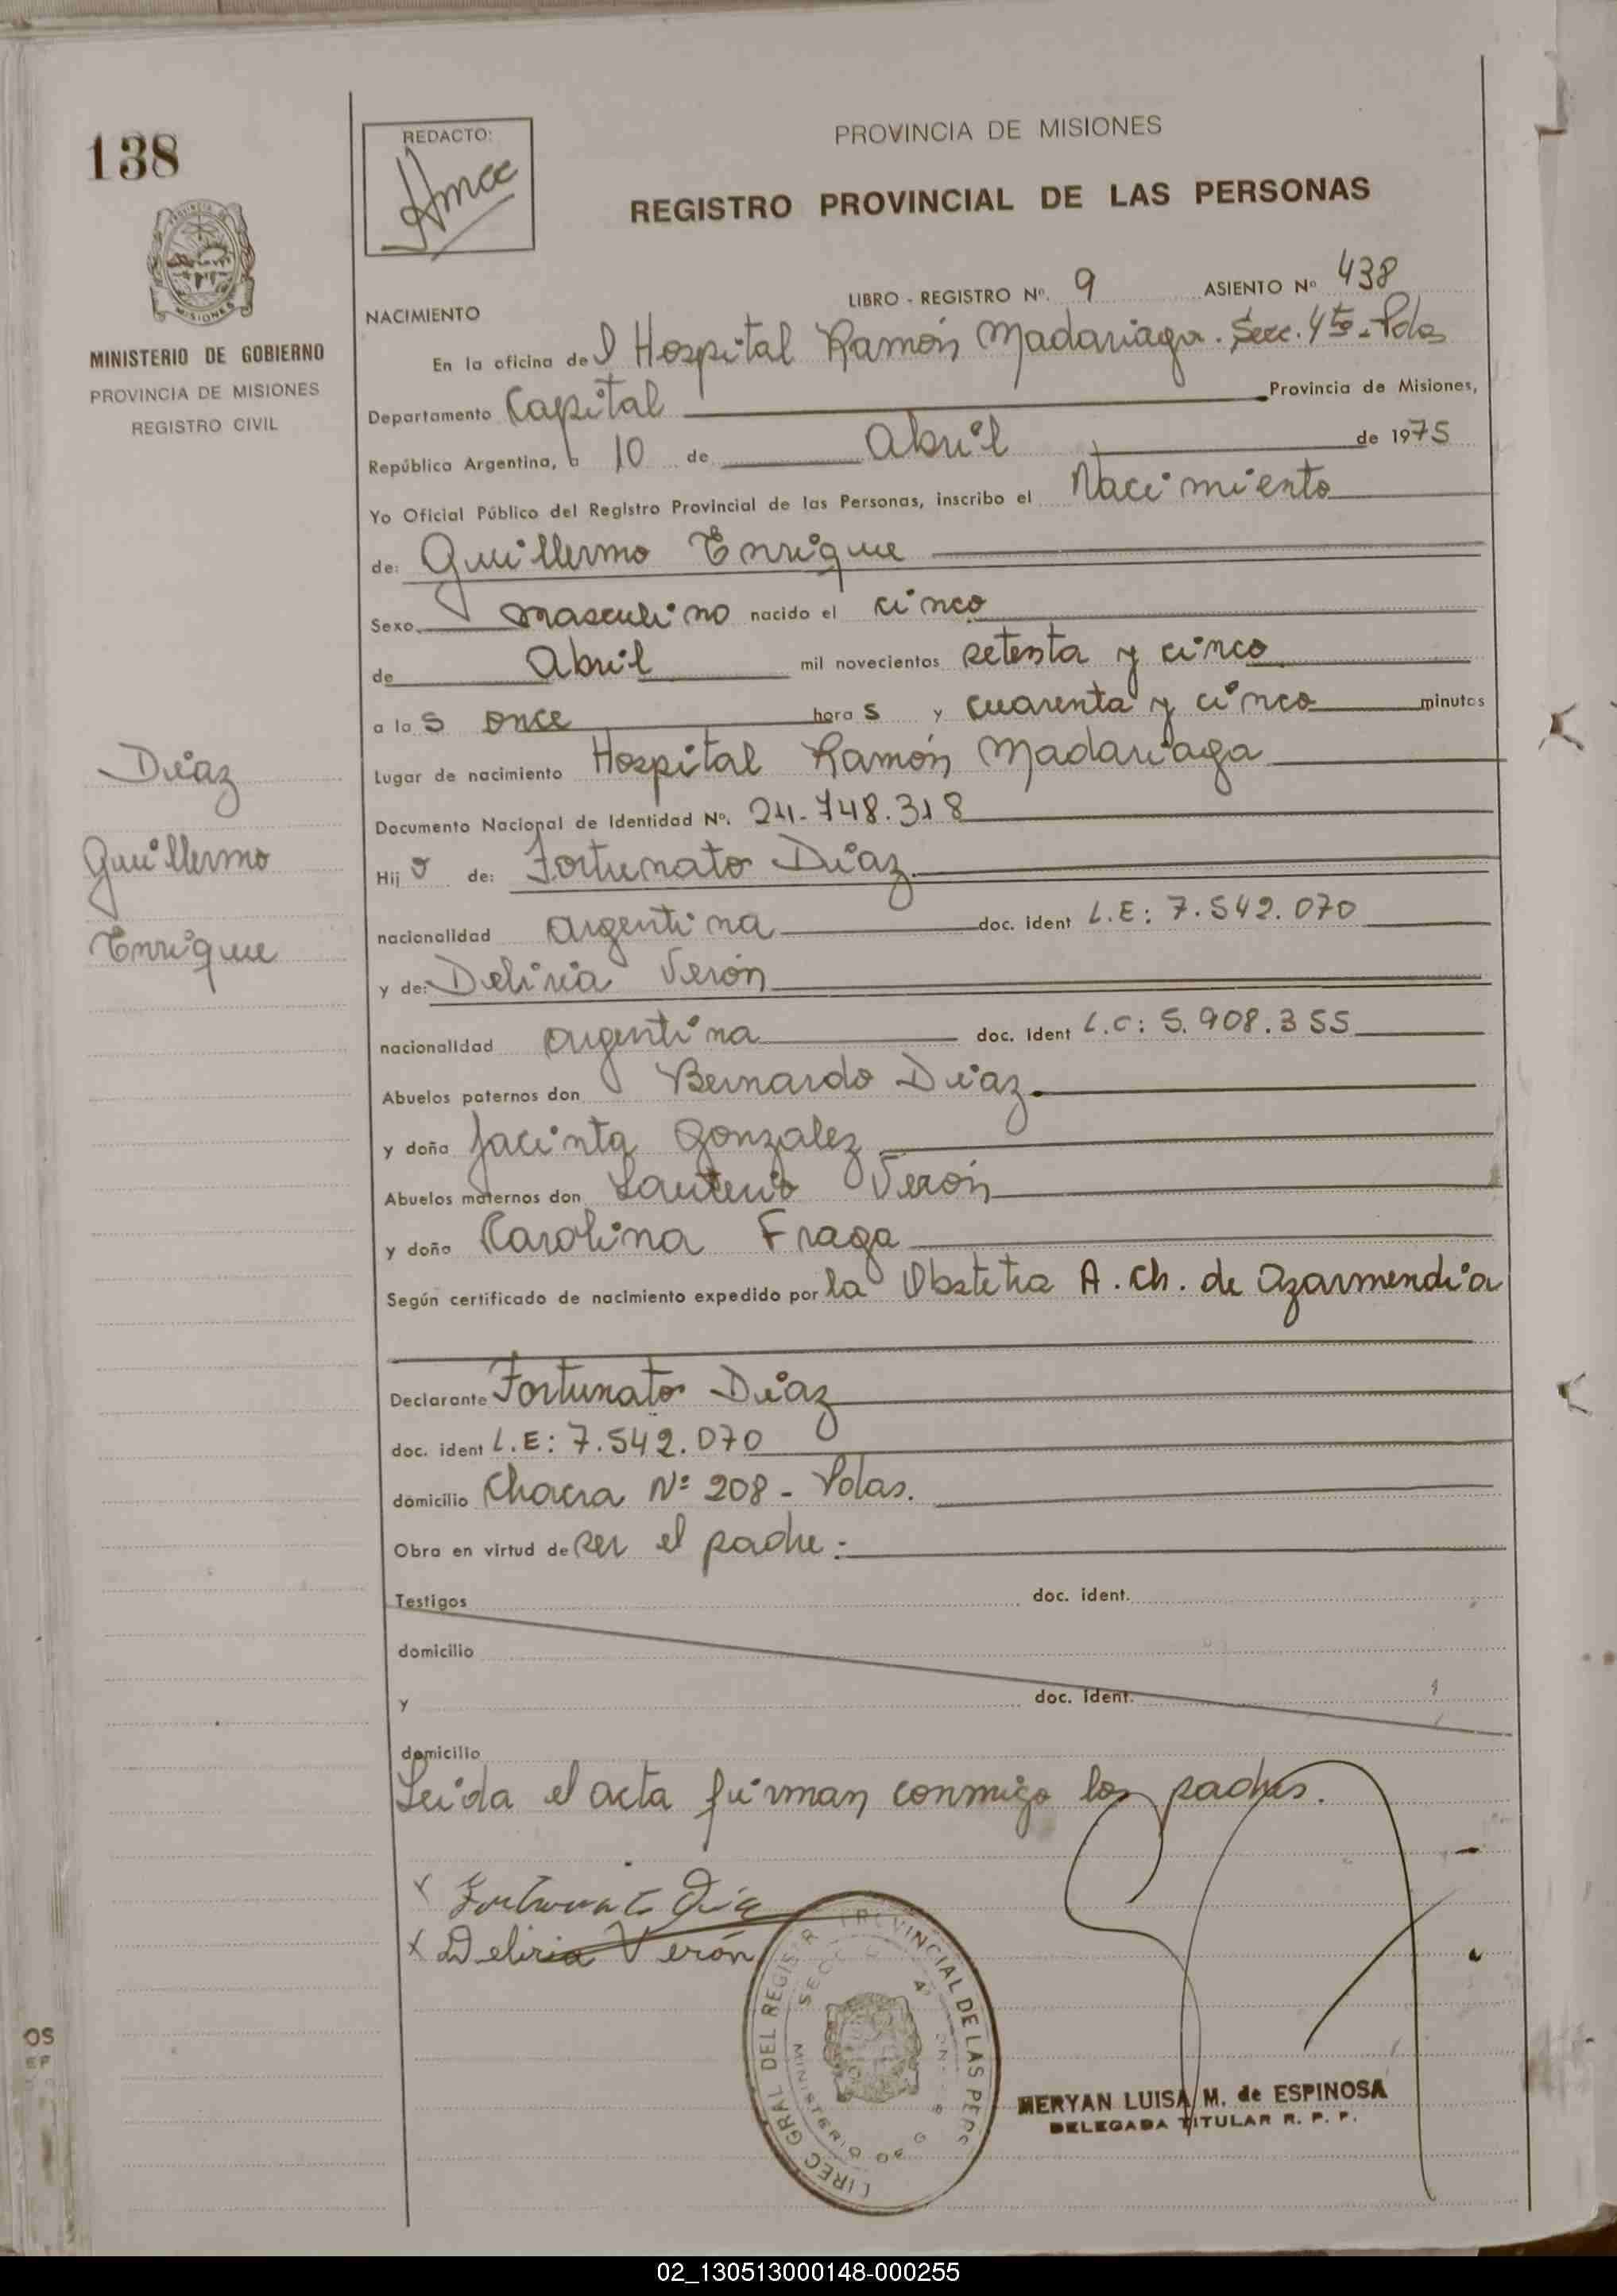 138
REDACTO:
PROVINCIA DE MISIONES
REGISTRO PROVINCIAL DE LAS PERSONAS
MISIONES
MINISTERIO DE GOBIERNO
PROVINCIA DE MISIONES
REGISTRO CIVIL
NACIMIENTO
LIBRO - REGISTRO Nº. 9 ASIENTO Nº 438
En la oficina del Hospital Ramón Madariaga. Secc. 4ta - Pdas
Departamento Capital Provincia de Misiones,
República Argentina, a 10 de Abril de 1975
Yo Oficial Público del Registro Provincial de las Personas, inscribo el Nacimiento
de: Guillermo Enrique
Sexo masculino nacido el cinco
de Abril mil novecientos setenta y cinco
a las once horas y cuarenta y cinco minutos
Lugar de nacimiento Hospital Ramón Madariaga
Documento Nacional de Identidad Nº. 24.748.318
Hijo de: Fortunato Díaz
nacionalidad argentina doc. ident L.E: 7.542.070
y de: Deliria Verón
nacionalidad argentina doc. ident L.C: 5.908.355
Abuelos paternos don Bernardo Díaz
y doña Jacinta Gonzalez
Abuelos maternos don Verón
y doña Carolina Fraga
Según certificado de nacimiento expedido por la Obstetra A. Ch. de Azarmendia
Declarante Fortunato Díaz
doc. ident L.E: 7.542.070
domicilio Chacra Nº 208 - Pdas.
Obra en virtud de ser el padre.
Testigos doc. ident.
domicilio
y doc. ident.
domicilio
Leída el acta firman conmigo los padres.
x Fortunato Día
x Deliria Verón
DIREC GRAL DEL REGISTR PROVINCIAL DE LAS PERS
MINISTERIO DE G
MERYAN LUISA M. de ESPINOSA
DELEGADA TITULAR R. P. P.
Díaz
Guillermo
Enrique
02_130513000148-000255